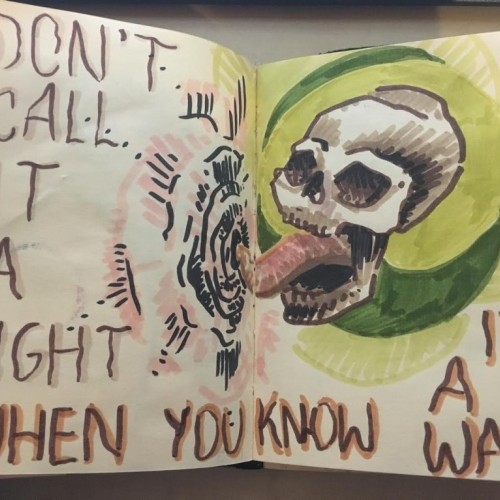 DON'T
CALL
IT
A
IGHT
WHEN YOU KNOW
I
A
WA